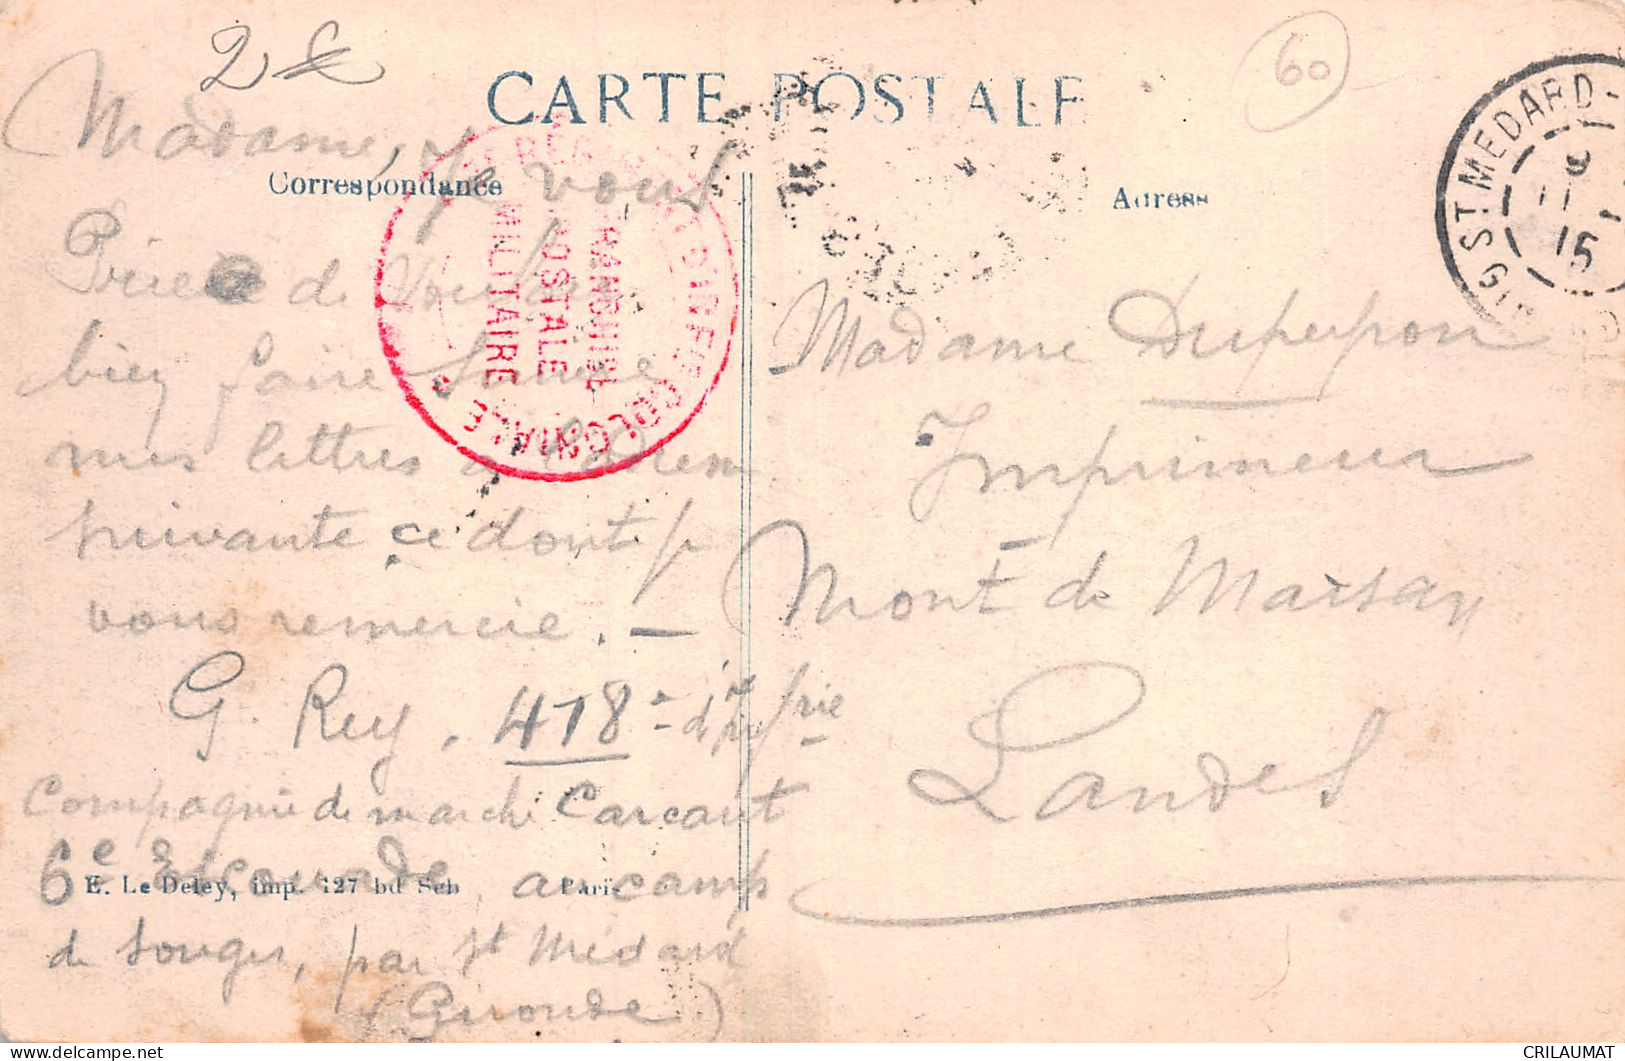 60
CARTE POSTALE
Correspondance
Adresse
Madame, Je vous
Prie de vouloir
bien faire suivre
mes lettres à l'adresse
suivante ce dont je
vous remercie. —
G. Rey. 418e d'Infrie
Compagnie de marche Carcaut
6e Escouade, au camp
de Souges, par St Médard
(Gironde)
E. Le Deley, imp. 127 bd Seb Paris
FRANCHISE
POSTALE
MILITAIRE
D'INFIE COLONIALE
ST MEDARD
11
15
Madame Dupeyron
Imprimeur
Mont de Marsan
Landes
CRILAUMAT